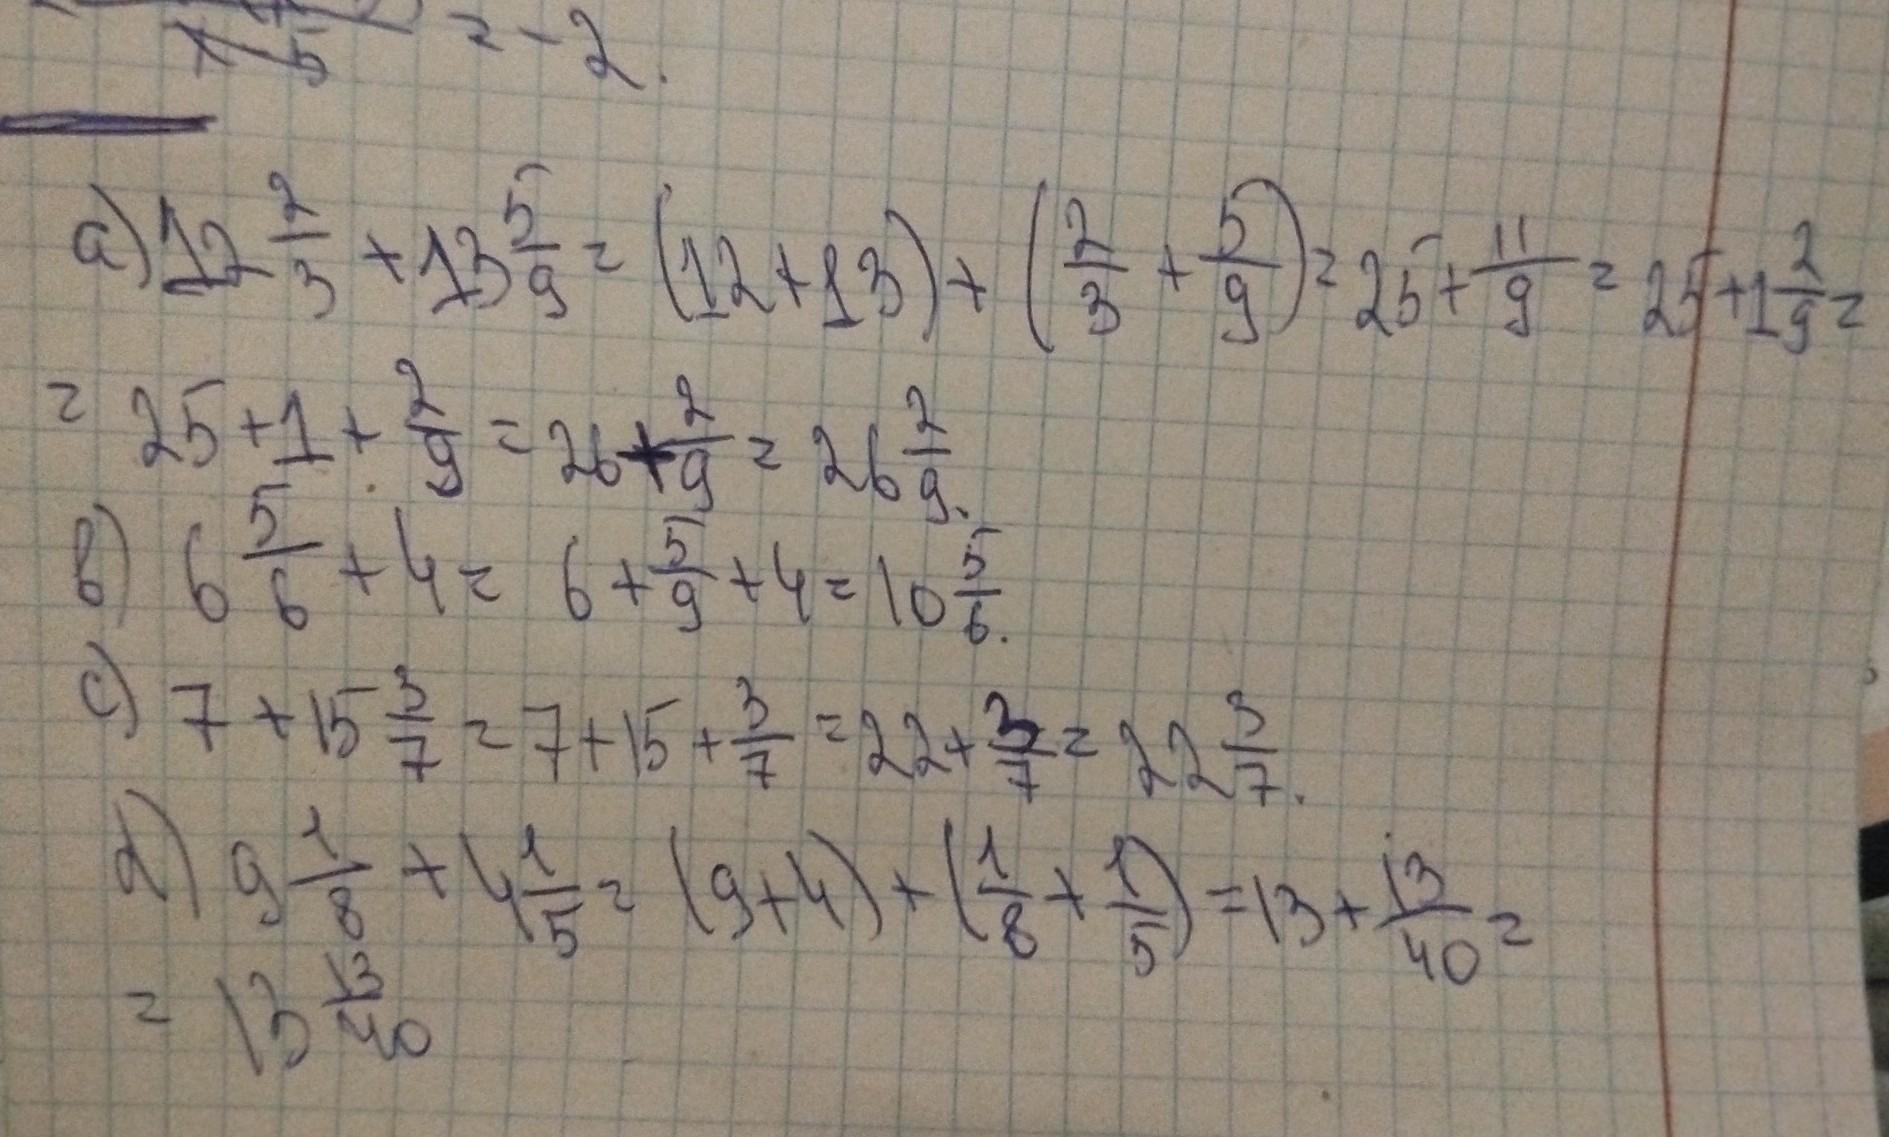 x-5 = -2.
a) 12 2/3 + 13 5/9 = (12+13) + (2/3 + 5/9) = 25 + 11/9 = 25 + 1 2/9 =
= 25 + 1 + 2/9 = 26 + 2/9 = 26 2/9.
b) 6 5/6 + 4 = 6 + 5/9 + 4 = 10 5/6.
c) 7 + 15 3/7 = 7 + 15 + 3/7 = 22 + 3/7 = 22 3/7.
d) 9 1/8 + 4 1/5 = (9+4) + (1/8 + 1/5) = 13 + 13/40 =
= 13 13/40